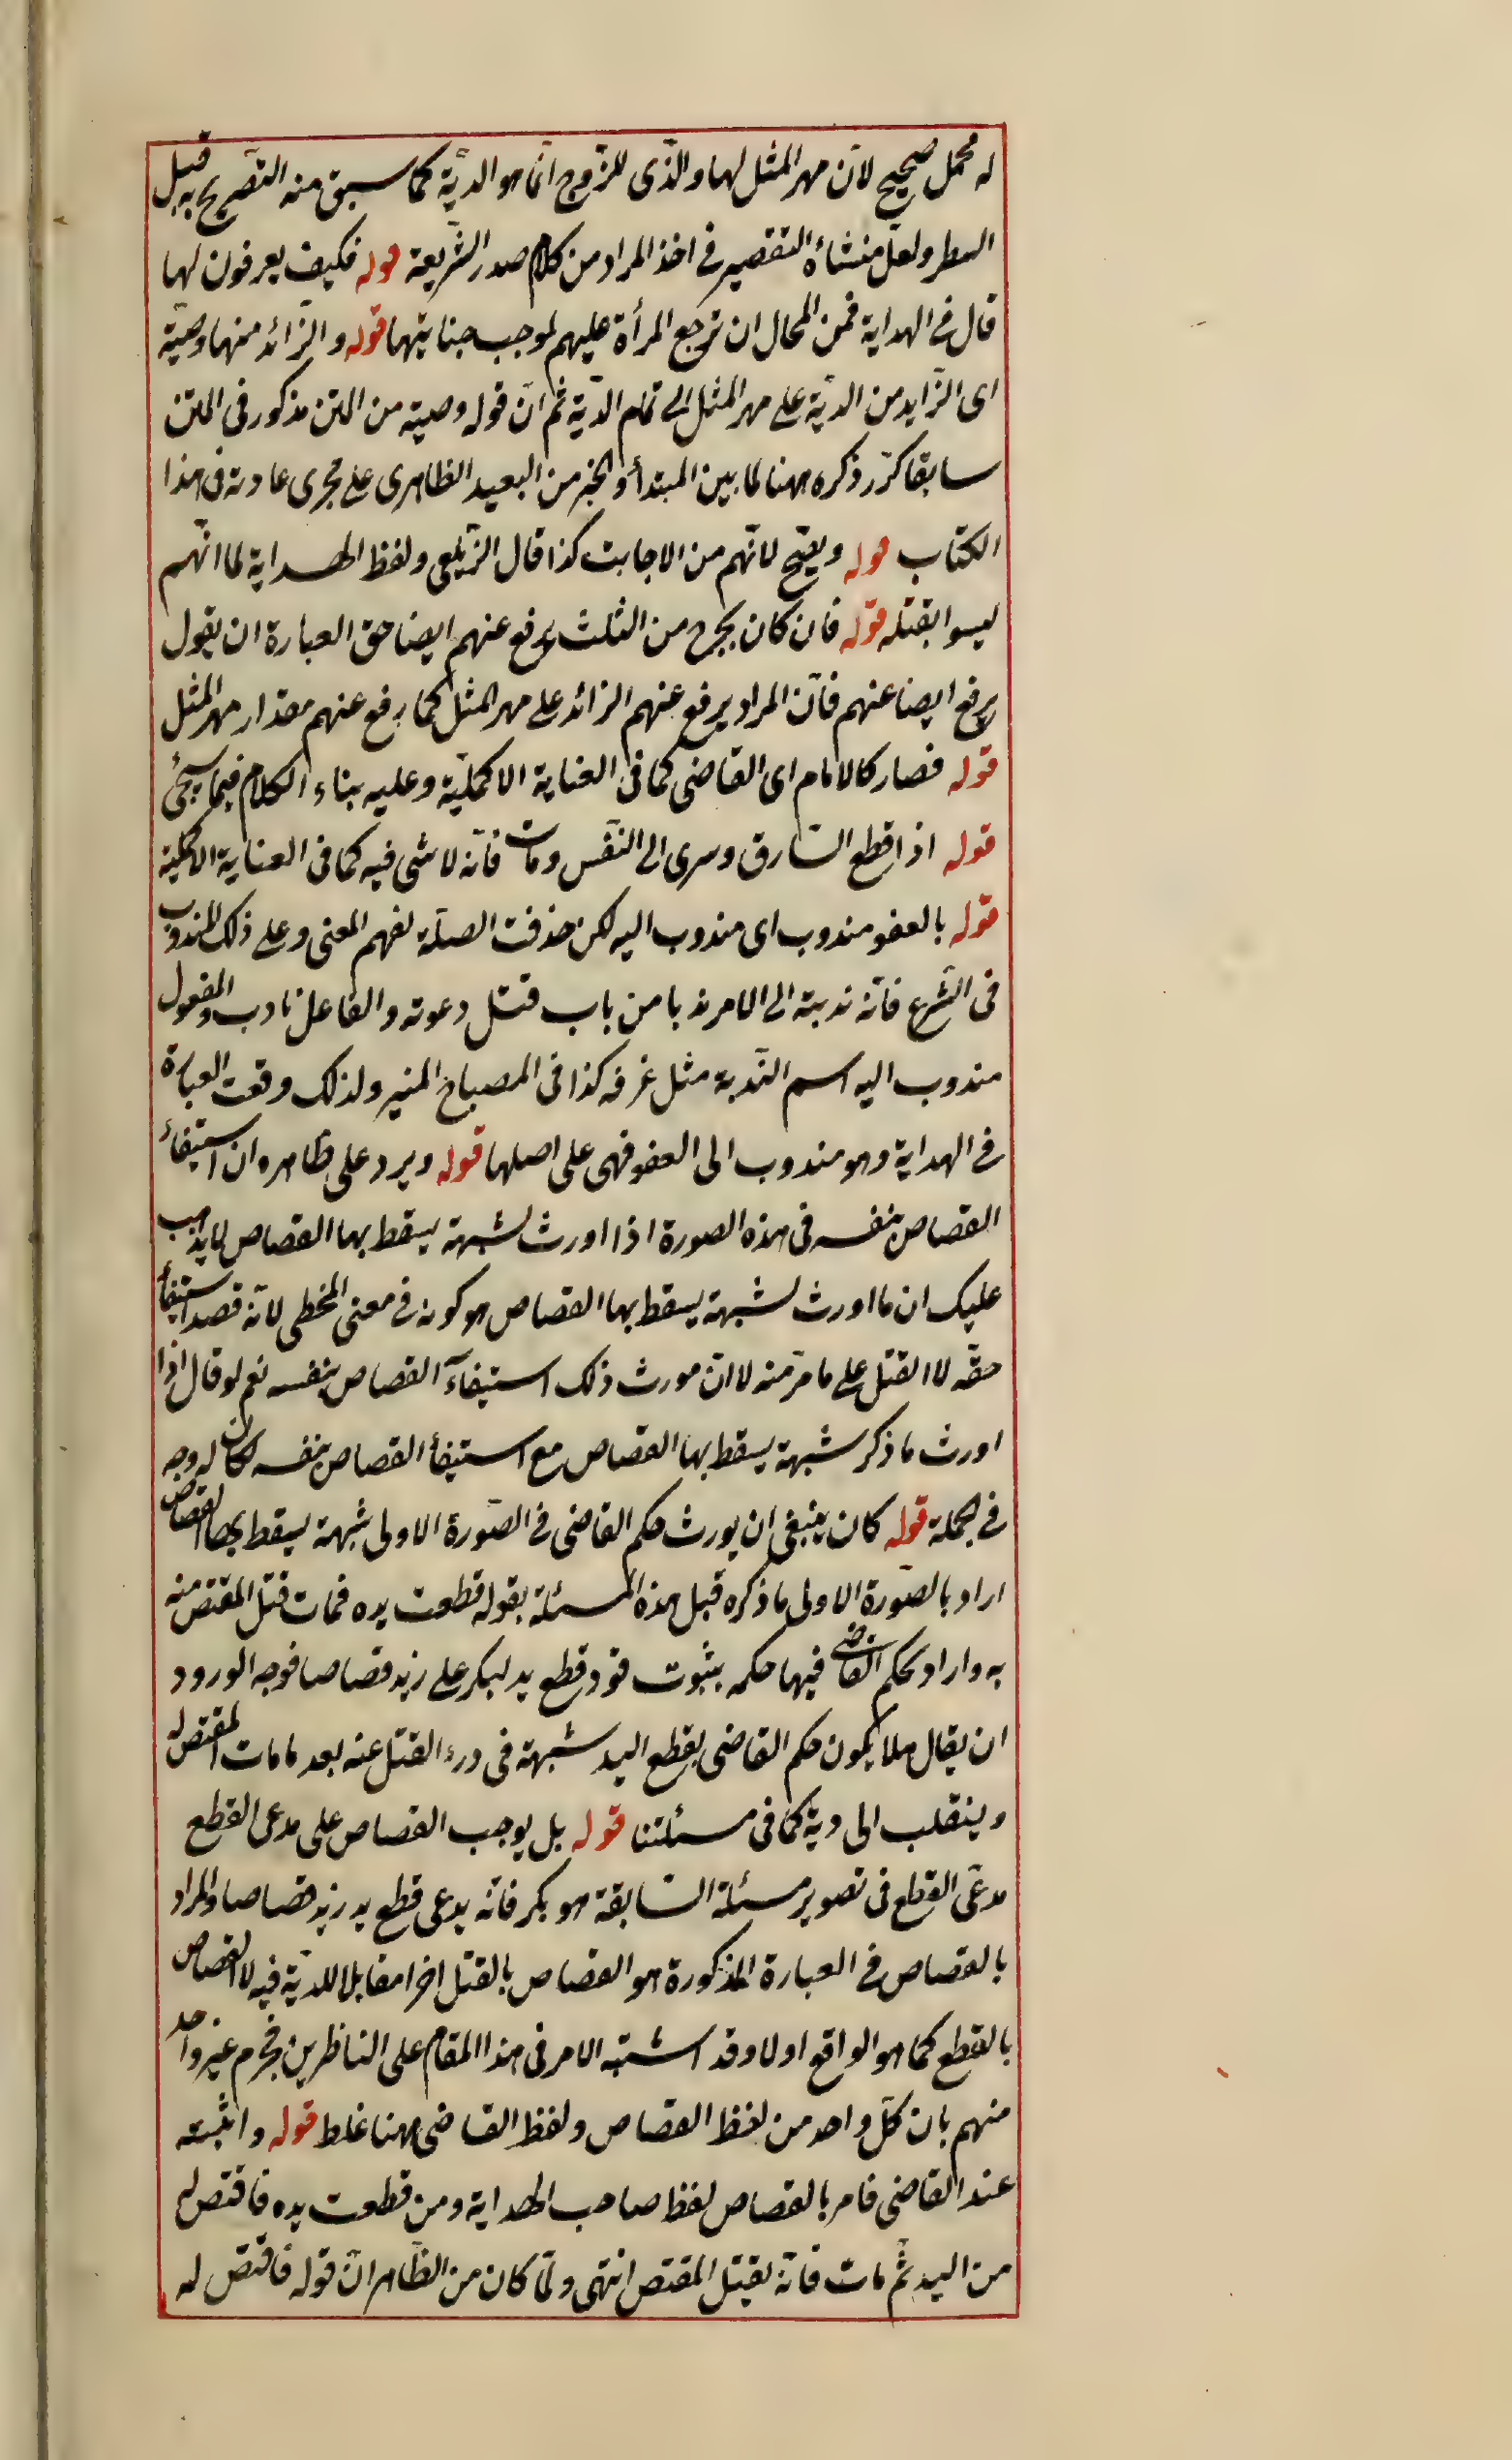 له محمل صحيح لان مهر المثل لها والذى للزوج انما هو الدية كما سبق منه التصريح به قبيل
السطر ولعل منشاءه التقصير فى اخذ المراد من كلام صدر الشريعة قوله فكيف يعرفون لها
قال فى الهداية فمن المحال ان ترجع المرأة عليهم لموجب جنايتها قوله والزائد منها وصية
اى الزايد من الدية على مهر المثل الى تمام الدية ثم ان قوله وصية من المتن مذكور فى المتن
سابقا كرر ذكره ههنا لما بين المبتدأ والخبر من البعيد الظاهرى على مجرى عادته فى هذا
الكتاب قوله ويصح لانهم من الاجانب كذا قال الزيلعى ولفظ الهداية لما انهم
ليسوا بقتله قوله فان كان يخرج من الثلث يرفع عنهم ايضا حق العبارة ان يقول
يرفع ايضا عنهم فان المراد يرفع عنهم الزائد على مهر المثل كما رفع عنهم مقدار مهر المثل
قوله فصار كالامام اى القاضى كما فى العناية الاكملية وعليه بناء الكلام فيما سيجئ
قوله اذا قطع السارق وسرى الى النفس ومات فانه لا شى فيه كما فى العناية الاكملية
قوله بالعفو مندوب اى مندوب اليه لكن حذفت الصلة لفهم المعنى وعلى ذلك المندوب
فى الشرع فانه ندبته الى الامر ندبا من باب قتل دعوته والفاعل نادب والمفعول
مندوب اليه اسم الندبة مثل غرفه كذا فى المصباح المنير ولذلك وقعت العبارة
فى الهداية وهو مندوب الى العفو فهى على اصلها قوله ويرد على ظاهره ان استيفاء
القصاص بنفسه فى هذه الصورة اذا اورث شبهة يسقط بها القصاص لا يذهب
عليك ان ما اورث شبهة يسقط بها القصاص هو كونه فى معنى المخطى لانه قصد استيفأ
حقه لا القتل على ما مر منه لا ان مورث ذلك استيفآء القصاص بنفسه نعم لو قال اذا
اورث ما ذكر شبهة يسقط بها القصاص مع استيفأ القصاص بنفسه لكان له وجه
فى الجملة قوله كان ينبغى ان يورث حكم القاضى فى الصورة الاولى شبهة يسقط بها القصاص
اراد بالصورة الاولى ما ذكره قبل هذه المسئلة بقوله قطعت يده فمات قتل المقتص منه
به واراد بحكم القاضى فيها حكمه بثبوت قود قطع يد لبكر على زيد قصاصا فوجه الورود
ان يقال هلا يكون حكم القاضى بقطع اليد شبهة فى درء القتل عنه بعد ما مات المقتص له
وينقلب الى دية كما فى مسئلتنا قوله بل يوجب القصاص على مدعى القطع
مدعى القطع فى تصوير مسئلة السابقة هو بكر فانه يدعى قطع يد زيد قصاصا والمراد
بالقصاص فى العبارة المذكورة هو القصاص بالقتل اخرا مقابلا للدية فيه لا القصاص
بالقطع كما هو الواقع اولا وقد اشتبه الامر فى هذا المقام على الناظرين فجزم غير واحد
منهم بان كل واحد من لفظ القصاص ولفظ القاضى ههنا غلط قوله واثبته
عند القاضى فامر بالقصاص لفظ صاحب الهداية ومن قطعت يده فاقتص له
من اليد ثم مات فانه يقتل المقتص انتهى ولما كان من الظاهر ان قوله فاقتص له